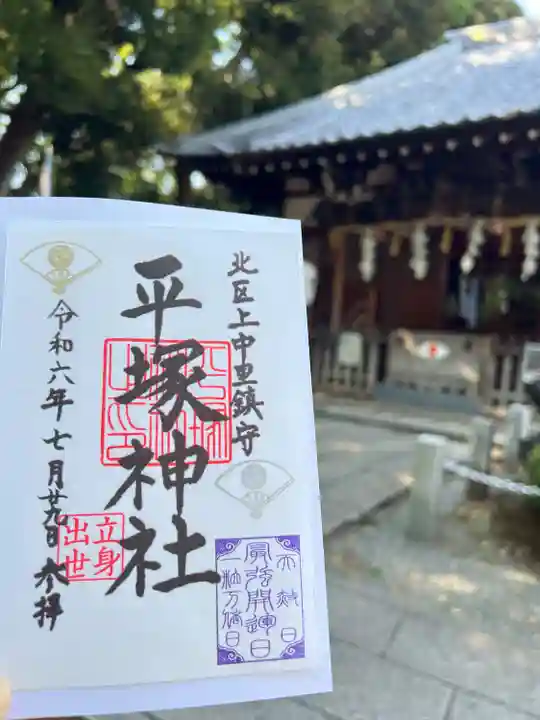 北区上中里鎮守
平塚神社
令和六年七月廿九日参拝
立身
出世
天赦日
最強開運日
一粒万倍日